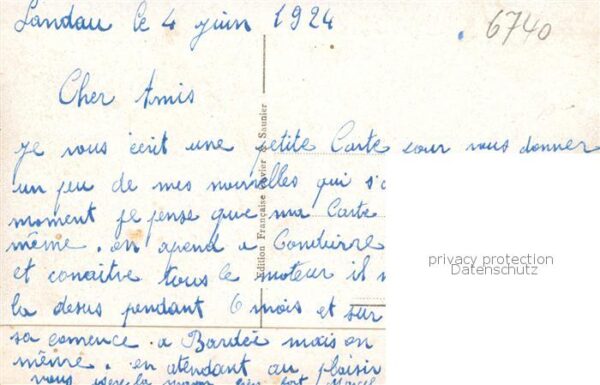 Landau le 4 juin 1924
6740
Cher Amis
je vous écrit une petite Carte pour vous donner
un peu de mes nouvelles qui s'
moment je pense que ma Carte
même. en apend a Conduirre
et conaitre tous le moteur il
la desus pendant 6 mois et sur
sa comence a Bardée mais on
même. en atendant au plaisir
vous
Edition Française & Saunier
privacy protection
Datenschutz